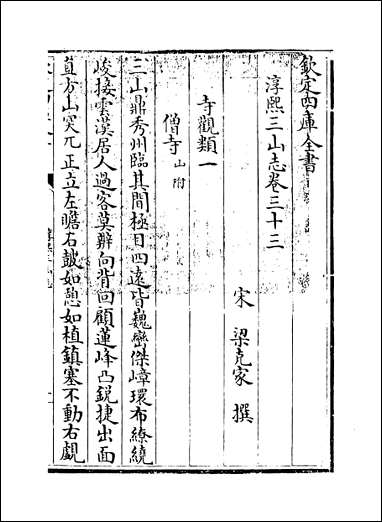 欽定四庫全書
淳熙三山志卷三十三
宋 梁克家 撰
寺觀類一
僧寺 山附
三山鼎秀州臨其間極目四遠皆巍巒傑嶂環布繚繞
峻接雲漢居人過客莫辨向背回顧蓮峰凸銳捷出面
直方山突兀正立左瞻石鼓如憩如植鎮塞不動右覷